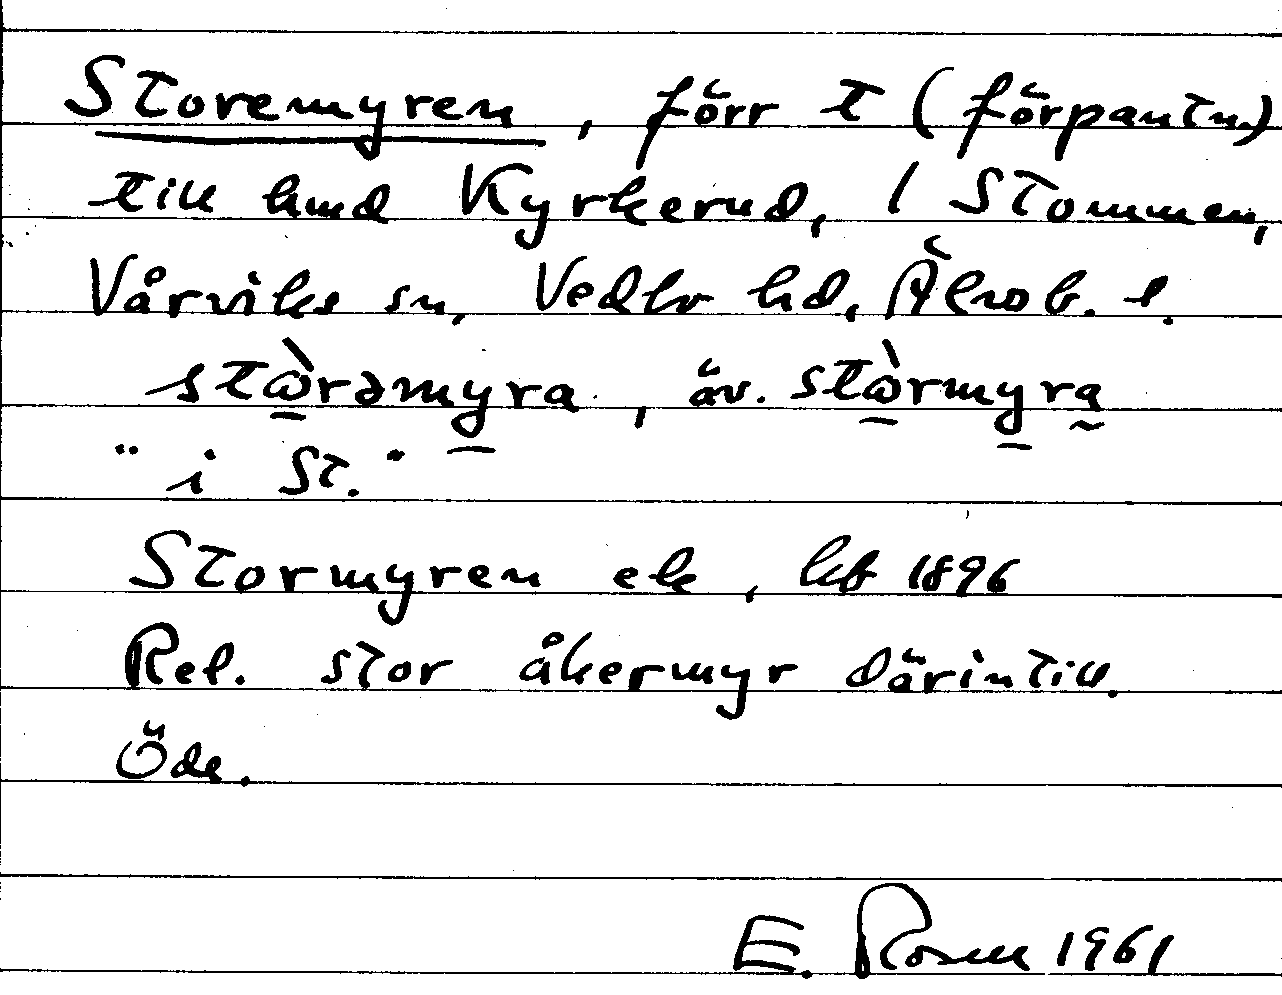 Storemyren, förr t (förpantn.)
till hmd Kyrkerud, 1 Stommen,
Vårviks sn, Vedbo hd, Älvsb. l.
stὼrəmyra, äv. stὼrmyra
"i St."
Stormyren ek, kb 1896
Rel. stor åkermyr därintill.
Öde.
E. Rosm 1961